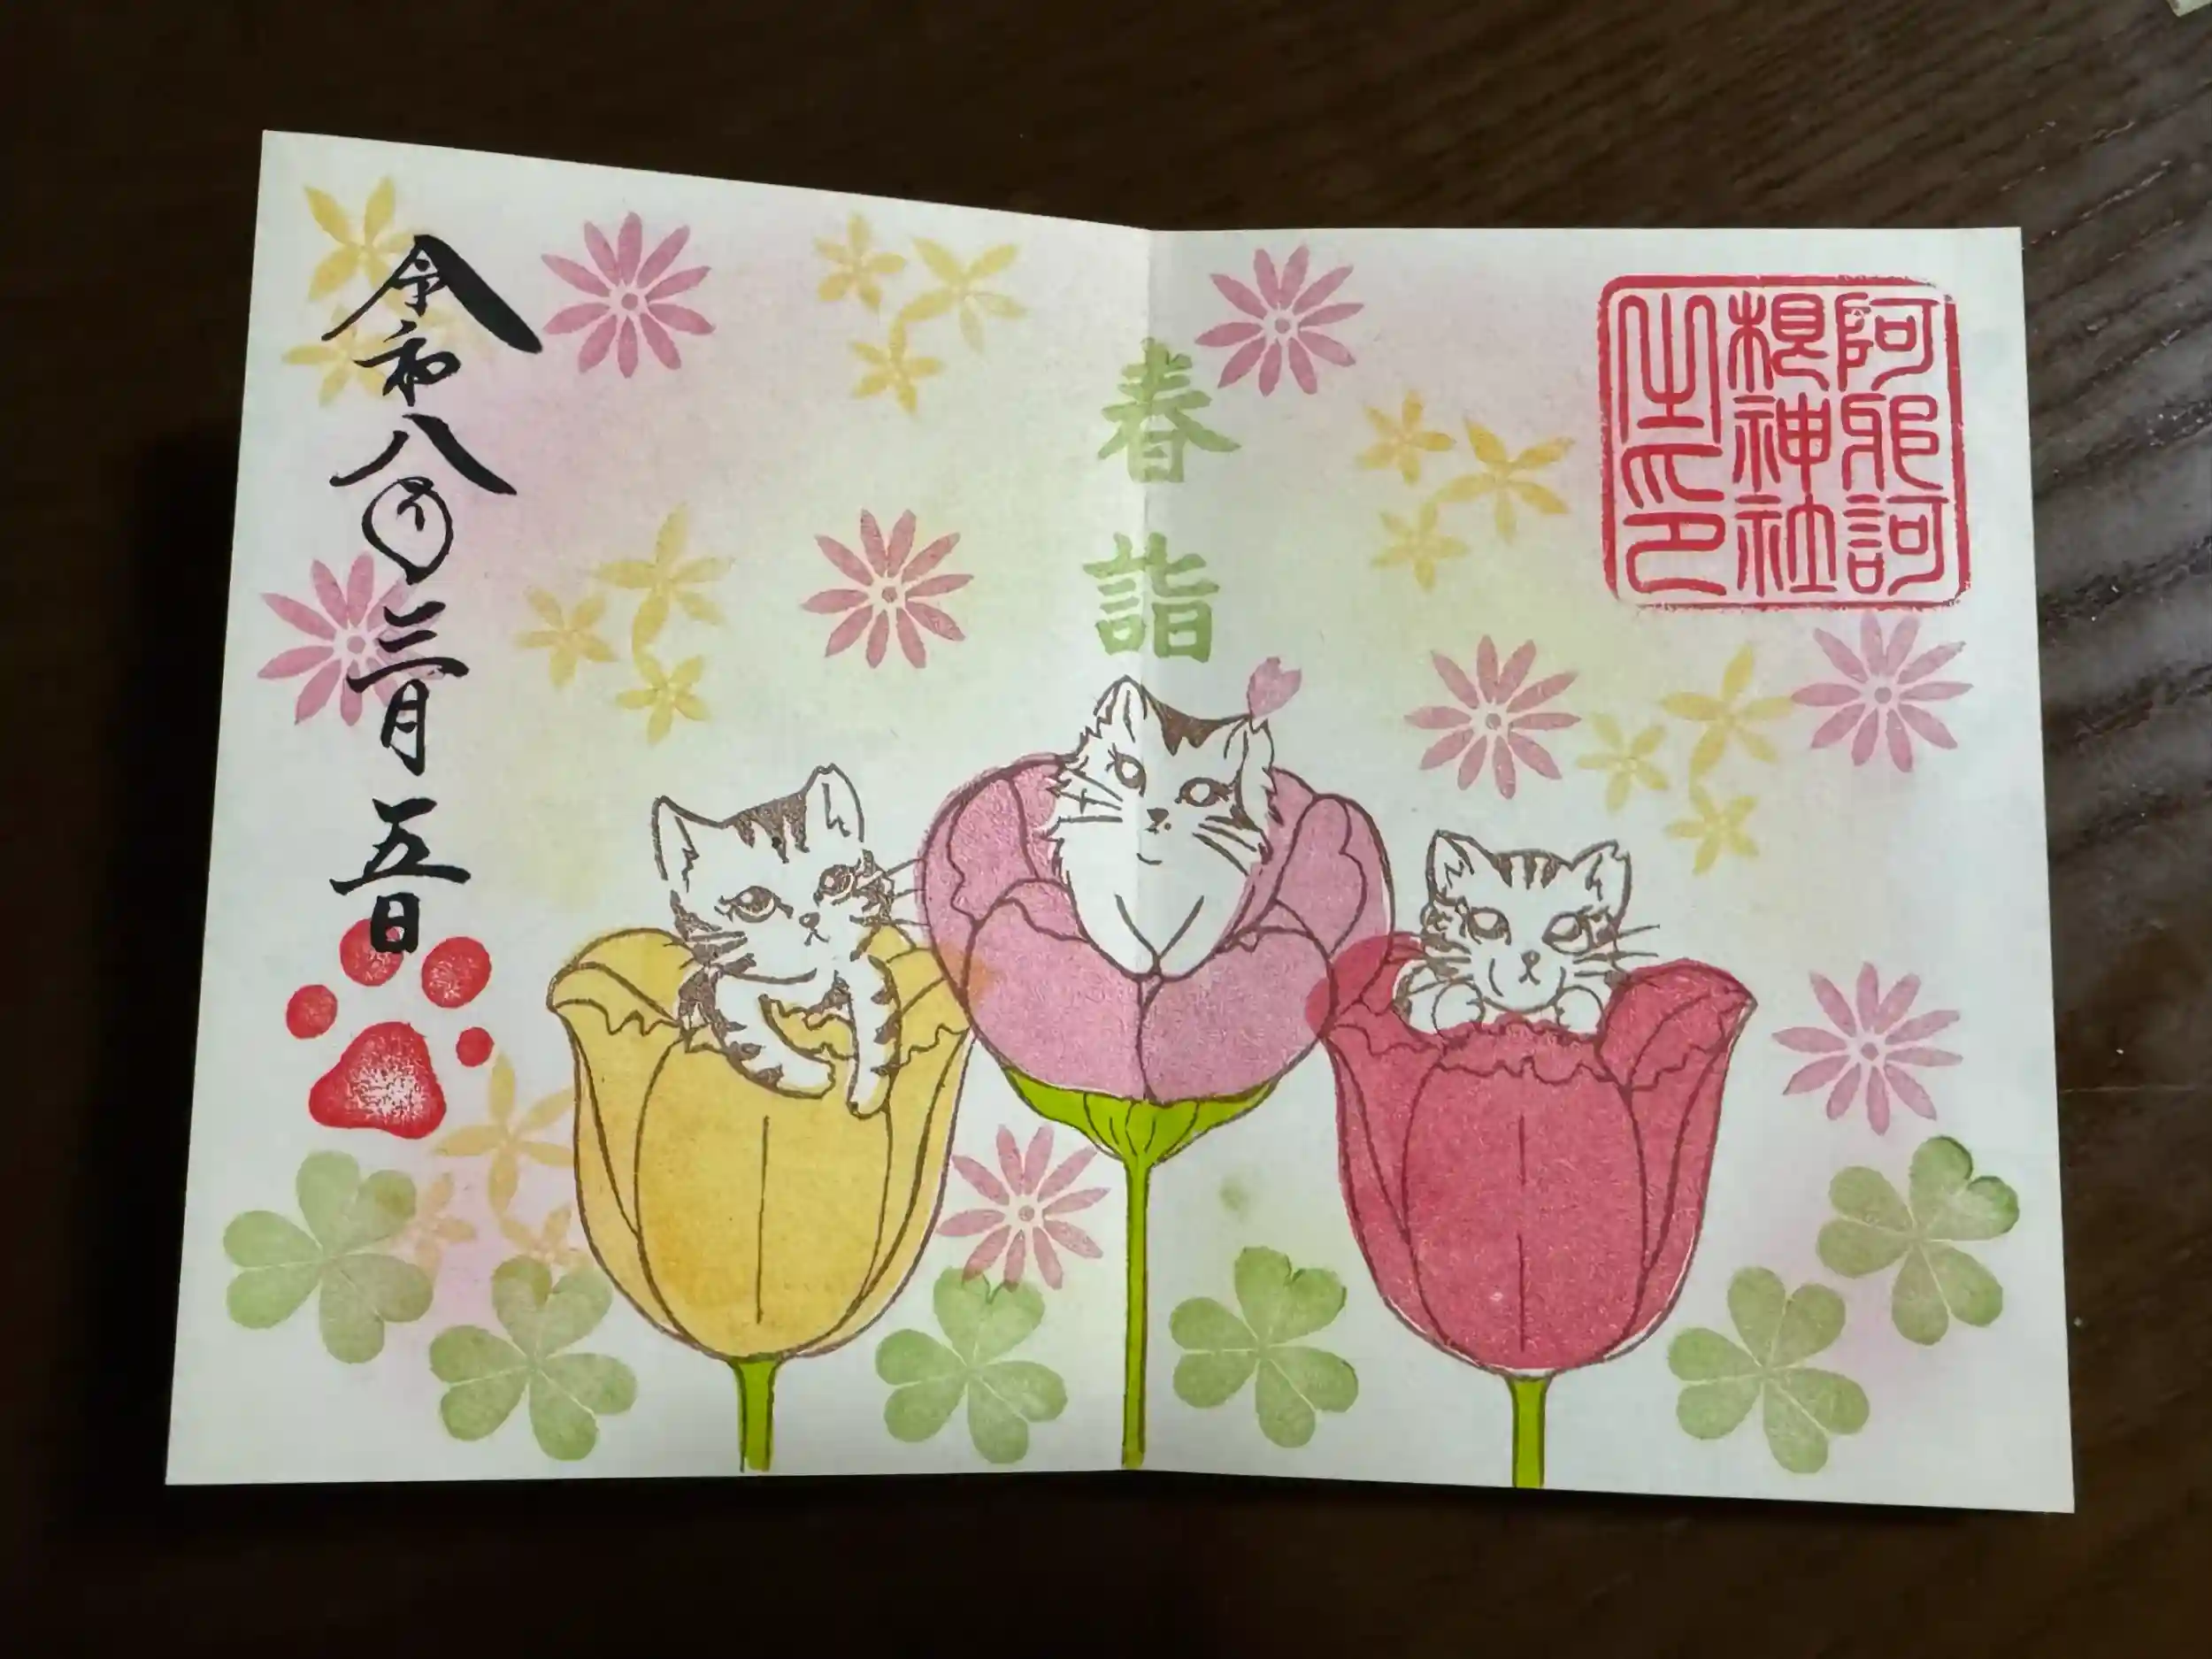 阿邪訶
根神社
之印
春詣
令和八年三月五日